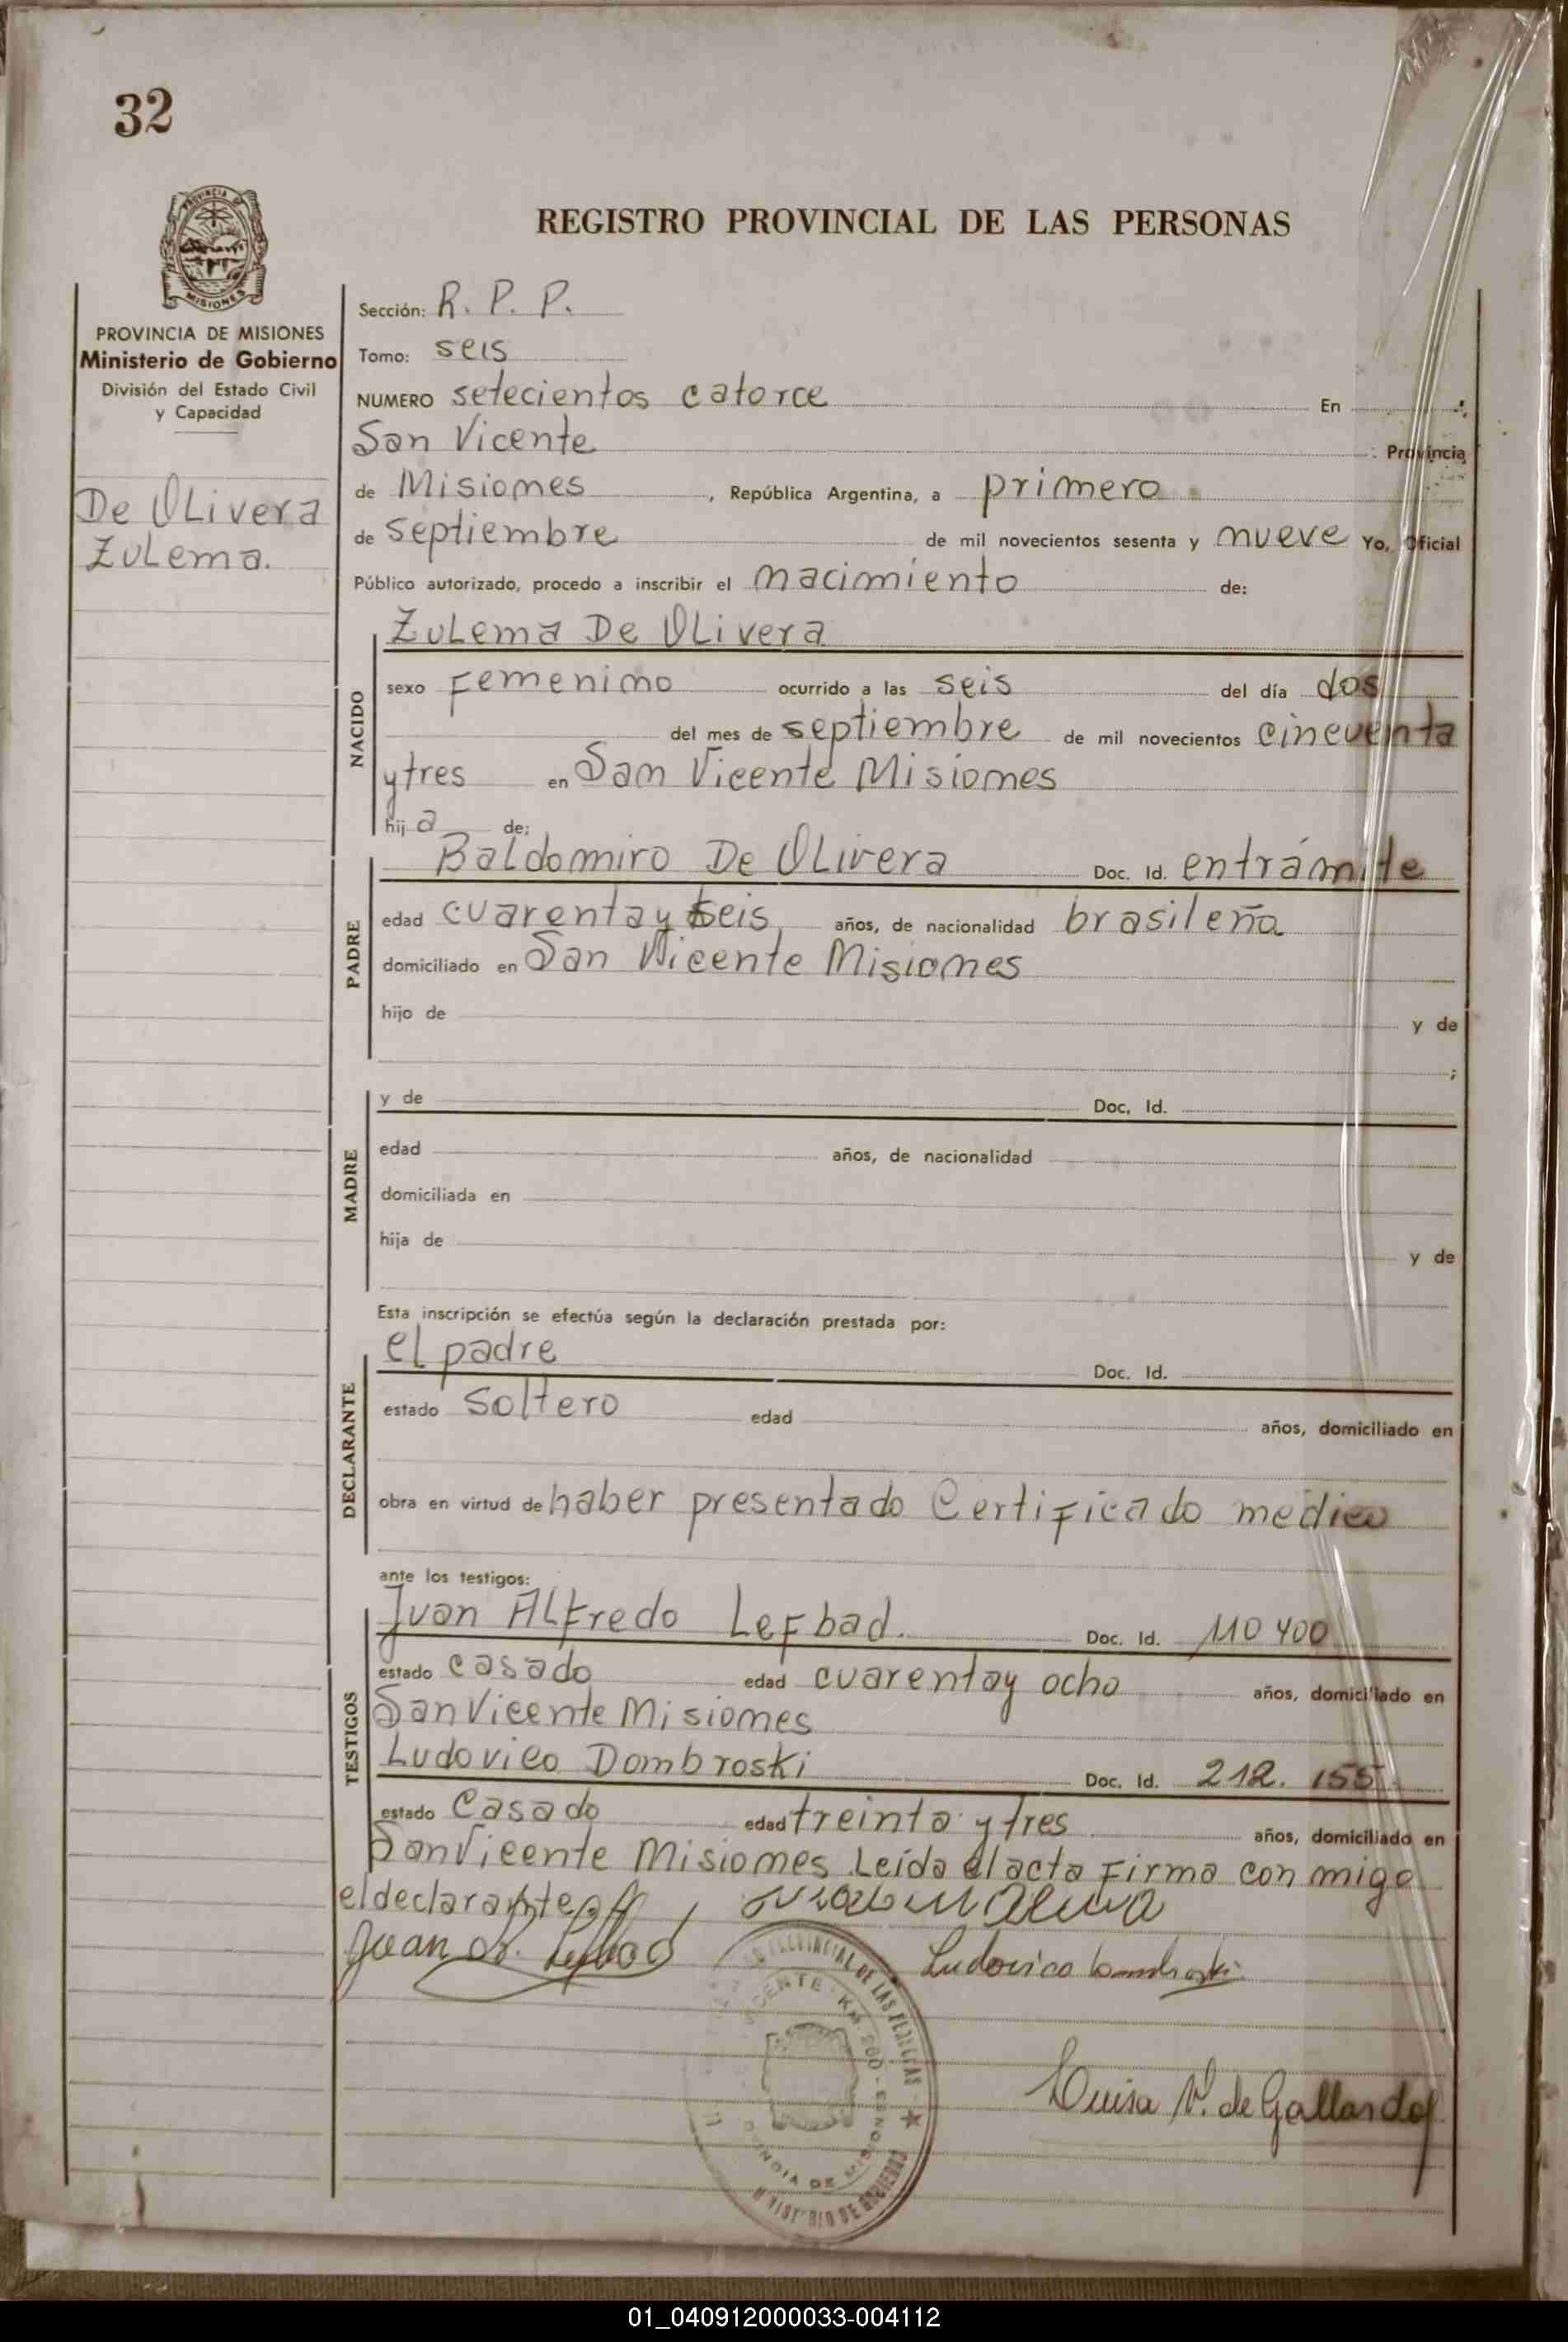 32
PROVINCIA DE
MISIONES
PROVINCIA DE MISIONES
Ministerio de Gobierno
División del Estado Civil
y Capacidad
De OLivera
ZuLema.
REGISTRO PROVINCIAL DE LAS PERSONAS
Sección: R. P. P.
Tomo: seis
NUMERO setecientos catorce En
San Vicente Provincia
de Misiones, República Argentina, a primero
de septiembre de mil novecientos sesenta y nueve Yo, Oficial
Público autorizado, procedo a inscribir el nacimiento de:
NACIDO
ZuLema De OLivera
sexo Femenino ocurrido a las seis del día dos
del mes de septiembre de mil novecientos cincuenta
y tres en San Vicente Misiones
hij a de;
PADRE
Baldomiro De OLivera Doc. Id. en trámite
edad cuarenta y seis, años, de nacionalidad brasileña
domiciliado en San Vicente Misiones
hijo de y de
;
MADRE
y de Doc. Id.
edad años, de nacionalidad
domiciliada en
hija de y de
Esta inscripción se efectúa según la declaración prestada por:
DECLARANTE
el padre Doc. Id.
estado soltero edad años, domiciliado en
obra en virtud de haber presentado Certificado medico
ante los testigos:
TESTIGOS
Juan ALFredo LeFbad. Doc. Id. 110 400
estado casado edad cuarenta y ocho años, domiciliado en
San Vicente Misiones
Ludovico Dombroski Doc. Id. 212. 155
estado Casado edad treinta y tres años, domiciliado en
San Vicente Misiones Leída el acta Firma con migo
el declarante
Juan A. Lefbad
Ludovico Dombroski
PROVINCIAL DE LAS
VICENTE - KM 260 - MISIONES
PROVINCIA DE
MINISTERIO DE GOBIERNO
Luisa V. de Gallardo
01_040912000033-004112